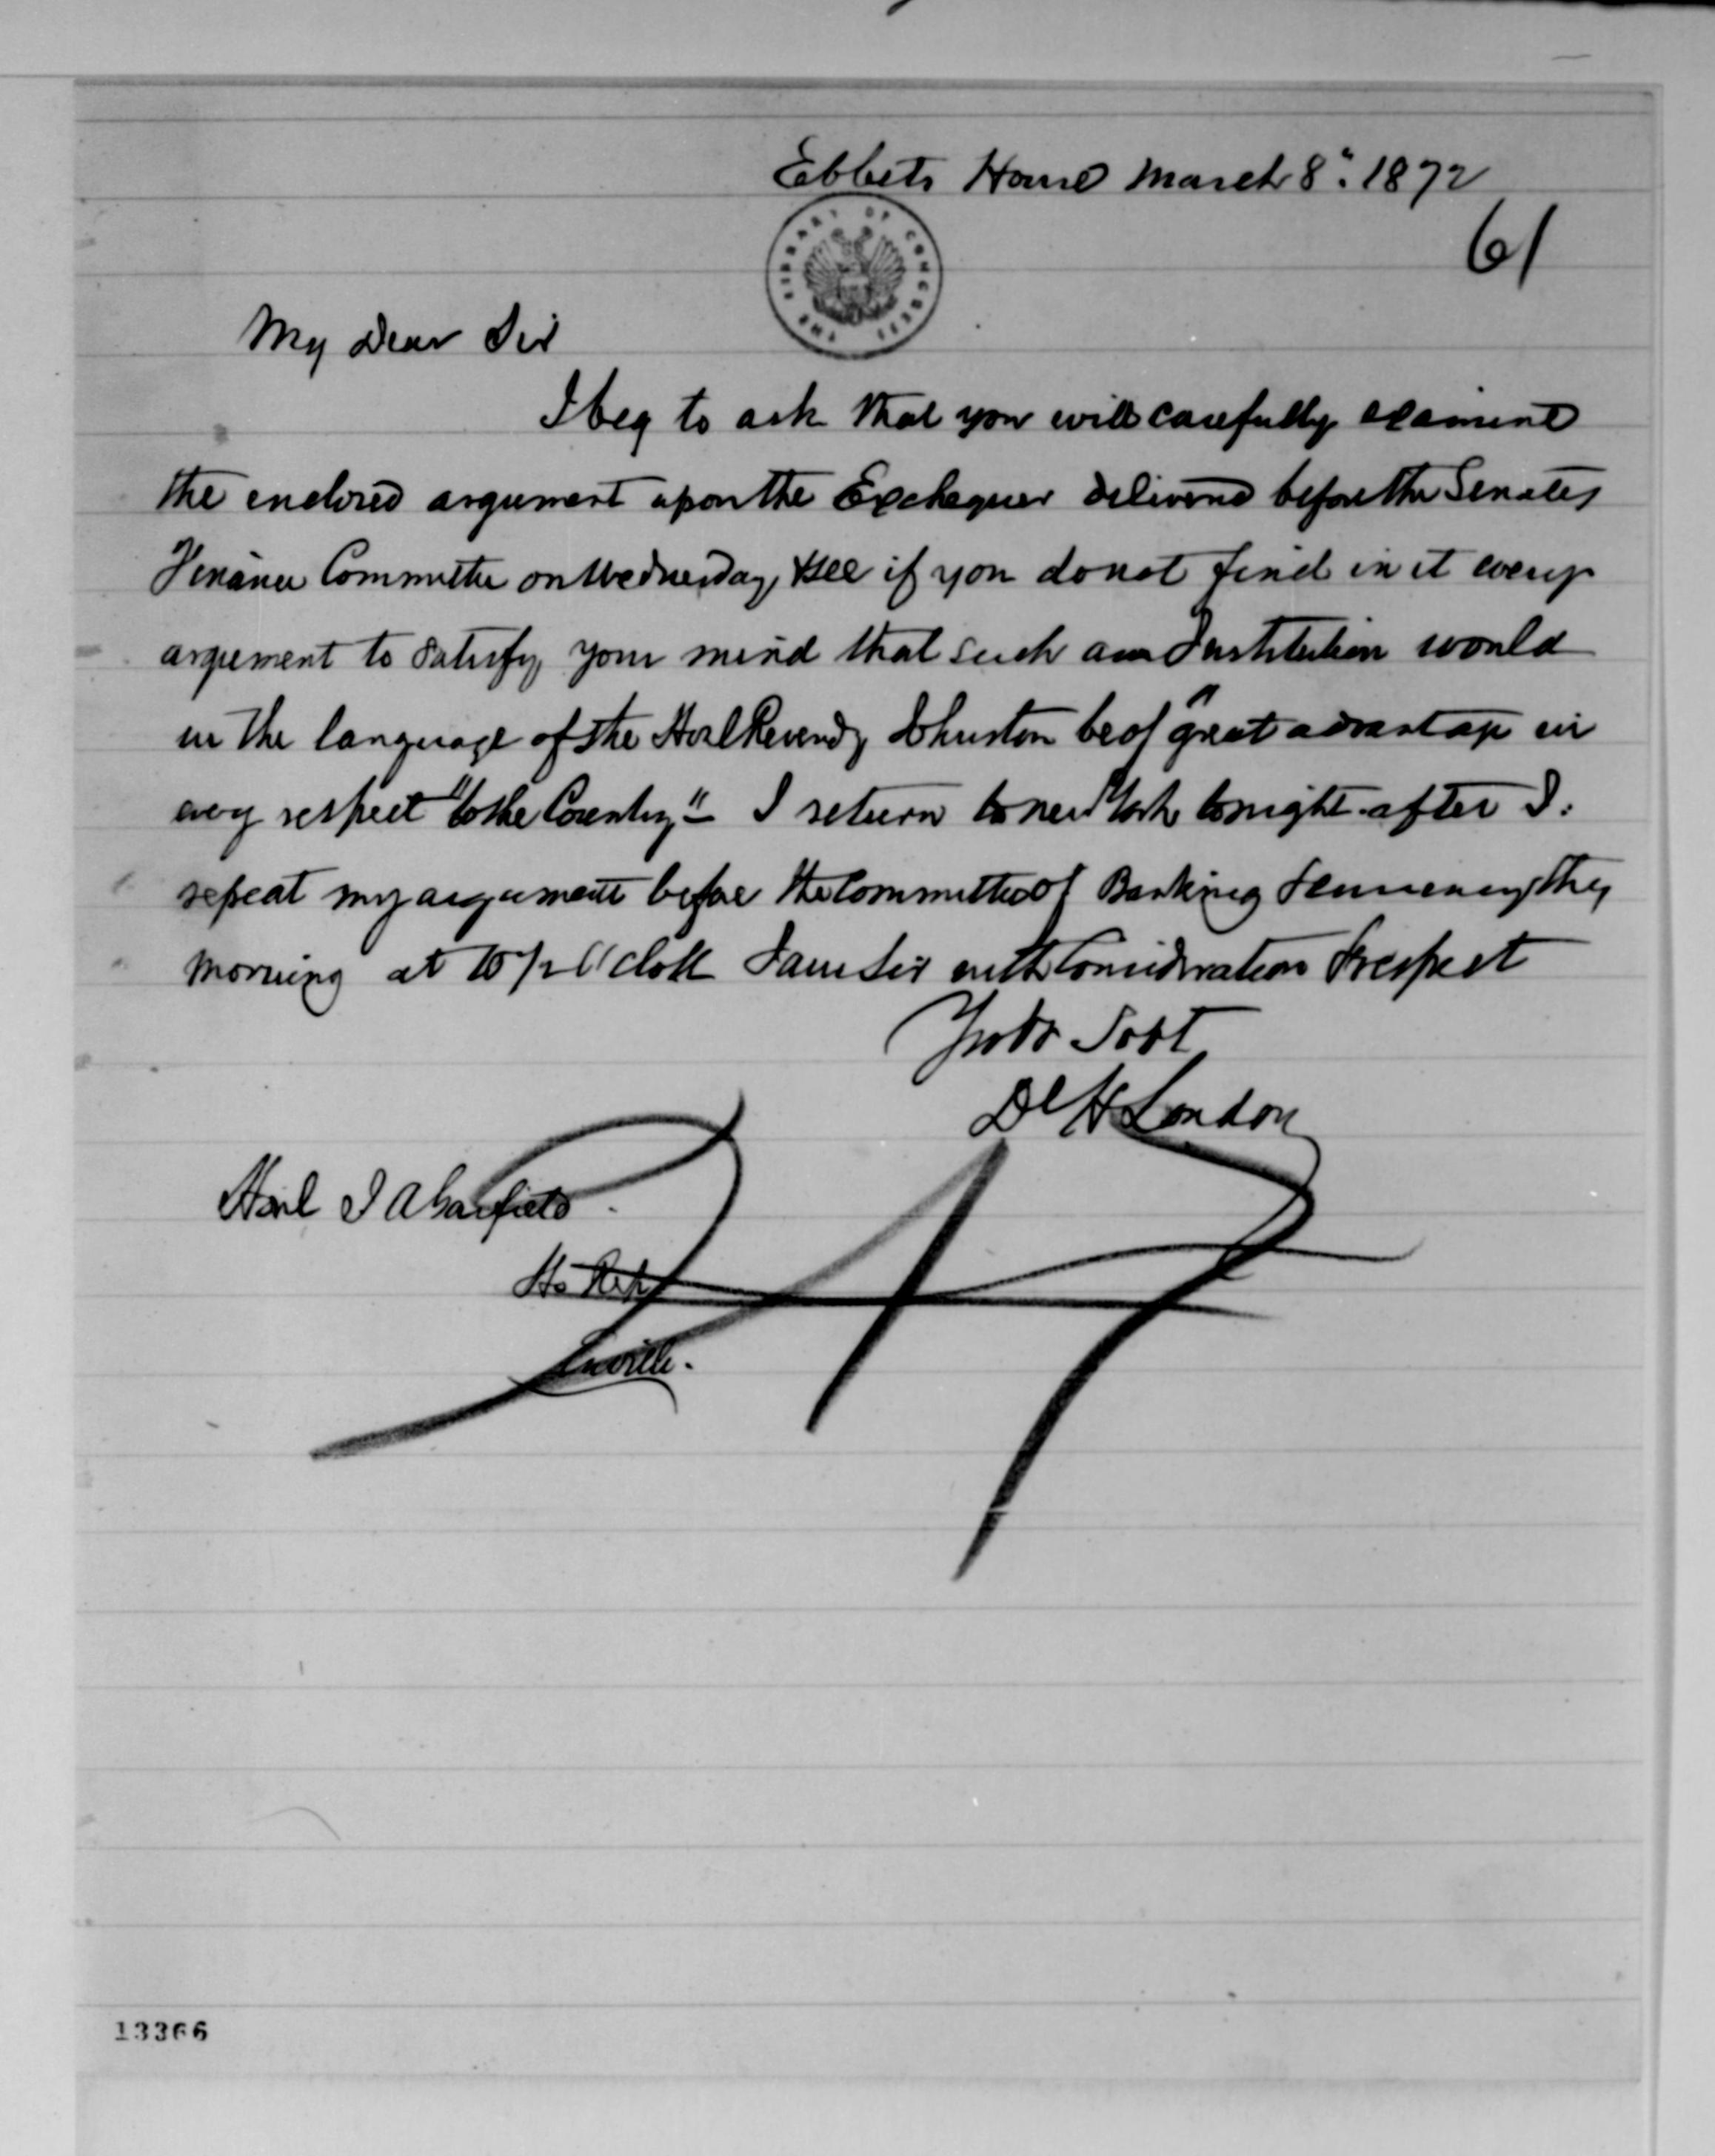 Ebbets House March 8". 1872
61
THE LIBRARY OF CONGRESS
My Dear Sir
I beg to ask that you will carefully examine
the enclosed argument upon the Exchequer delivered before the Senates
Finance Committee on Wednesday, & see if you do not find in it every
argument to satisfy your mind that such an Institution would
in the language of the Honl Reverdy Johnston be of "great advantage in
every respect "to the Country" - I return to New York tonight after I
repeat my argument before the Committee of Banking & Currency this
morning at 10 1/2 O'clock I am Sir with Consideration & respect
Yr Obt Sevt
Dl H London
Honl J A Garfield
Ho Rep
13366